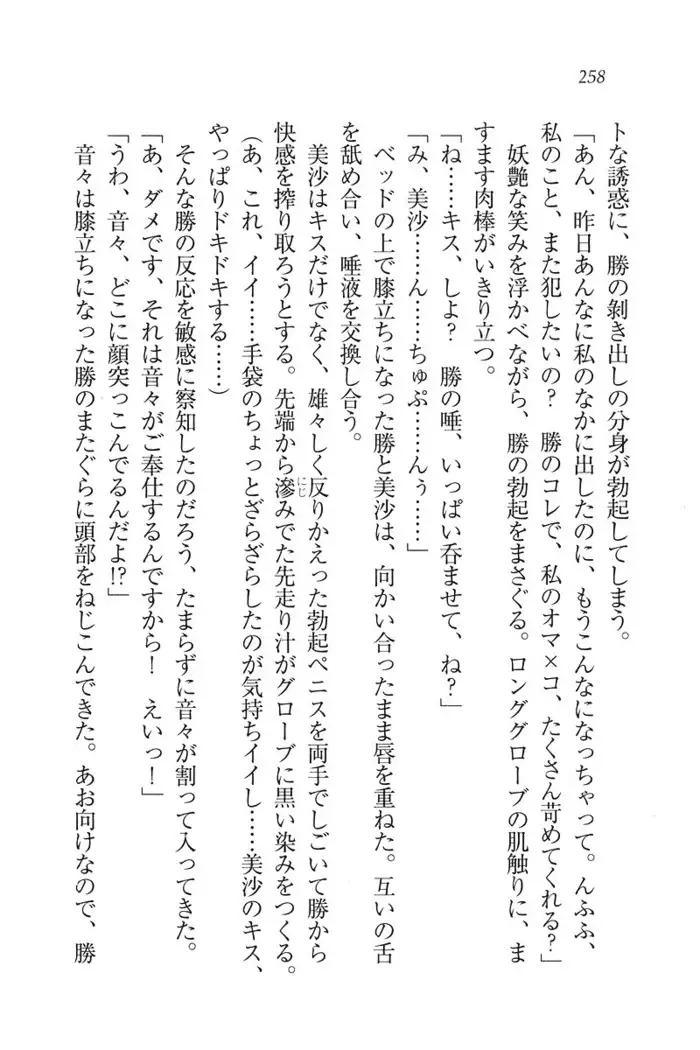 258
トな誘惑に、勝の剝き出しの分身が勃起してしまう。
「あん、昨日あんなに私のなかに出したのに、もうこんなになっちゃって。んふふ、
私のこと、また犯したいの？　勝のコレで、私のオマ×コ、たくさん苛めてくれる？」
妖艶な笑みを浮かべながら、勝の勃起をまさぐる。ロンググローブの肌触りに、ま
すます肉棒がいきり立つ。
「ね……キス、しよ？　勝の唾、いっぱい呑ませて、ね？」
「み、美沙……ん……ちゅぷ……んぅ……」
ベッドの上で膝立ちになった勝と美沙は、向かい合ったまま唇を重ねた。互いの舌
を舐め合い、唾液を交換し合う。
美沙はキスだけでなく、雄々しく反りかえった勃起ペニスを両手でしごいて勝から
快感を搾り取ろうとする。先端から滲にじみでた先走り汁がグローブに黒い染みをつくる。
（あ、これ、イイ……手袋のちょっとざらざらしたのが気持ちイイし……美沙のキス、
やっぱりドキドキする……）
そんな勝の反応を敏感に察知したのだろう、たまらずに音々が割って入ってきた。
「あ、ダメです、それは音々がご奉仕するんですから！　えいっ！」
「うわ、音々、どこに顔突っこんでるんだよ!?」
音々は膝立ちになった勝のまたぐらに頭部をねじこんできた。あお向けなので、勝